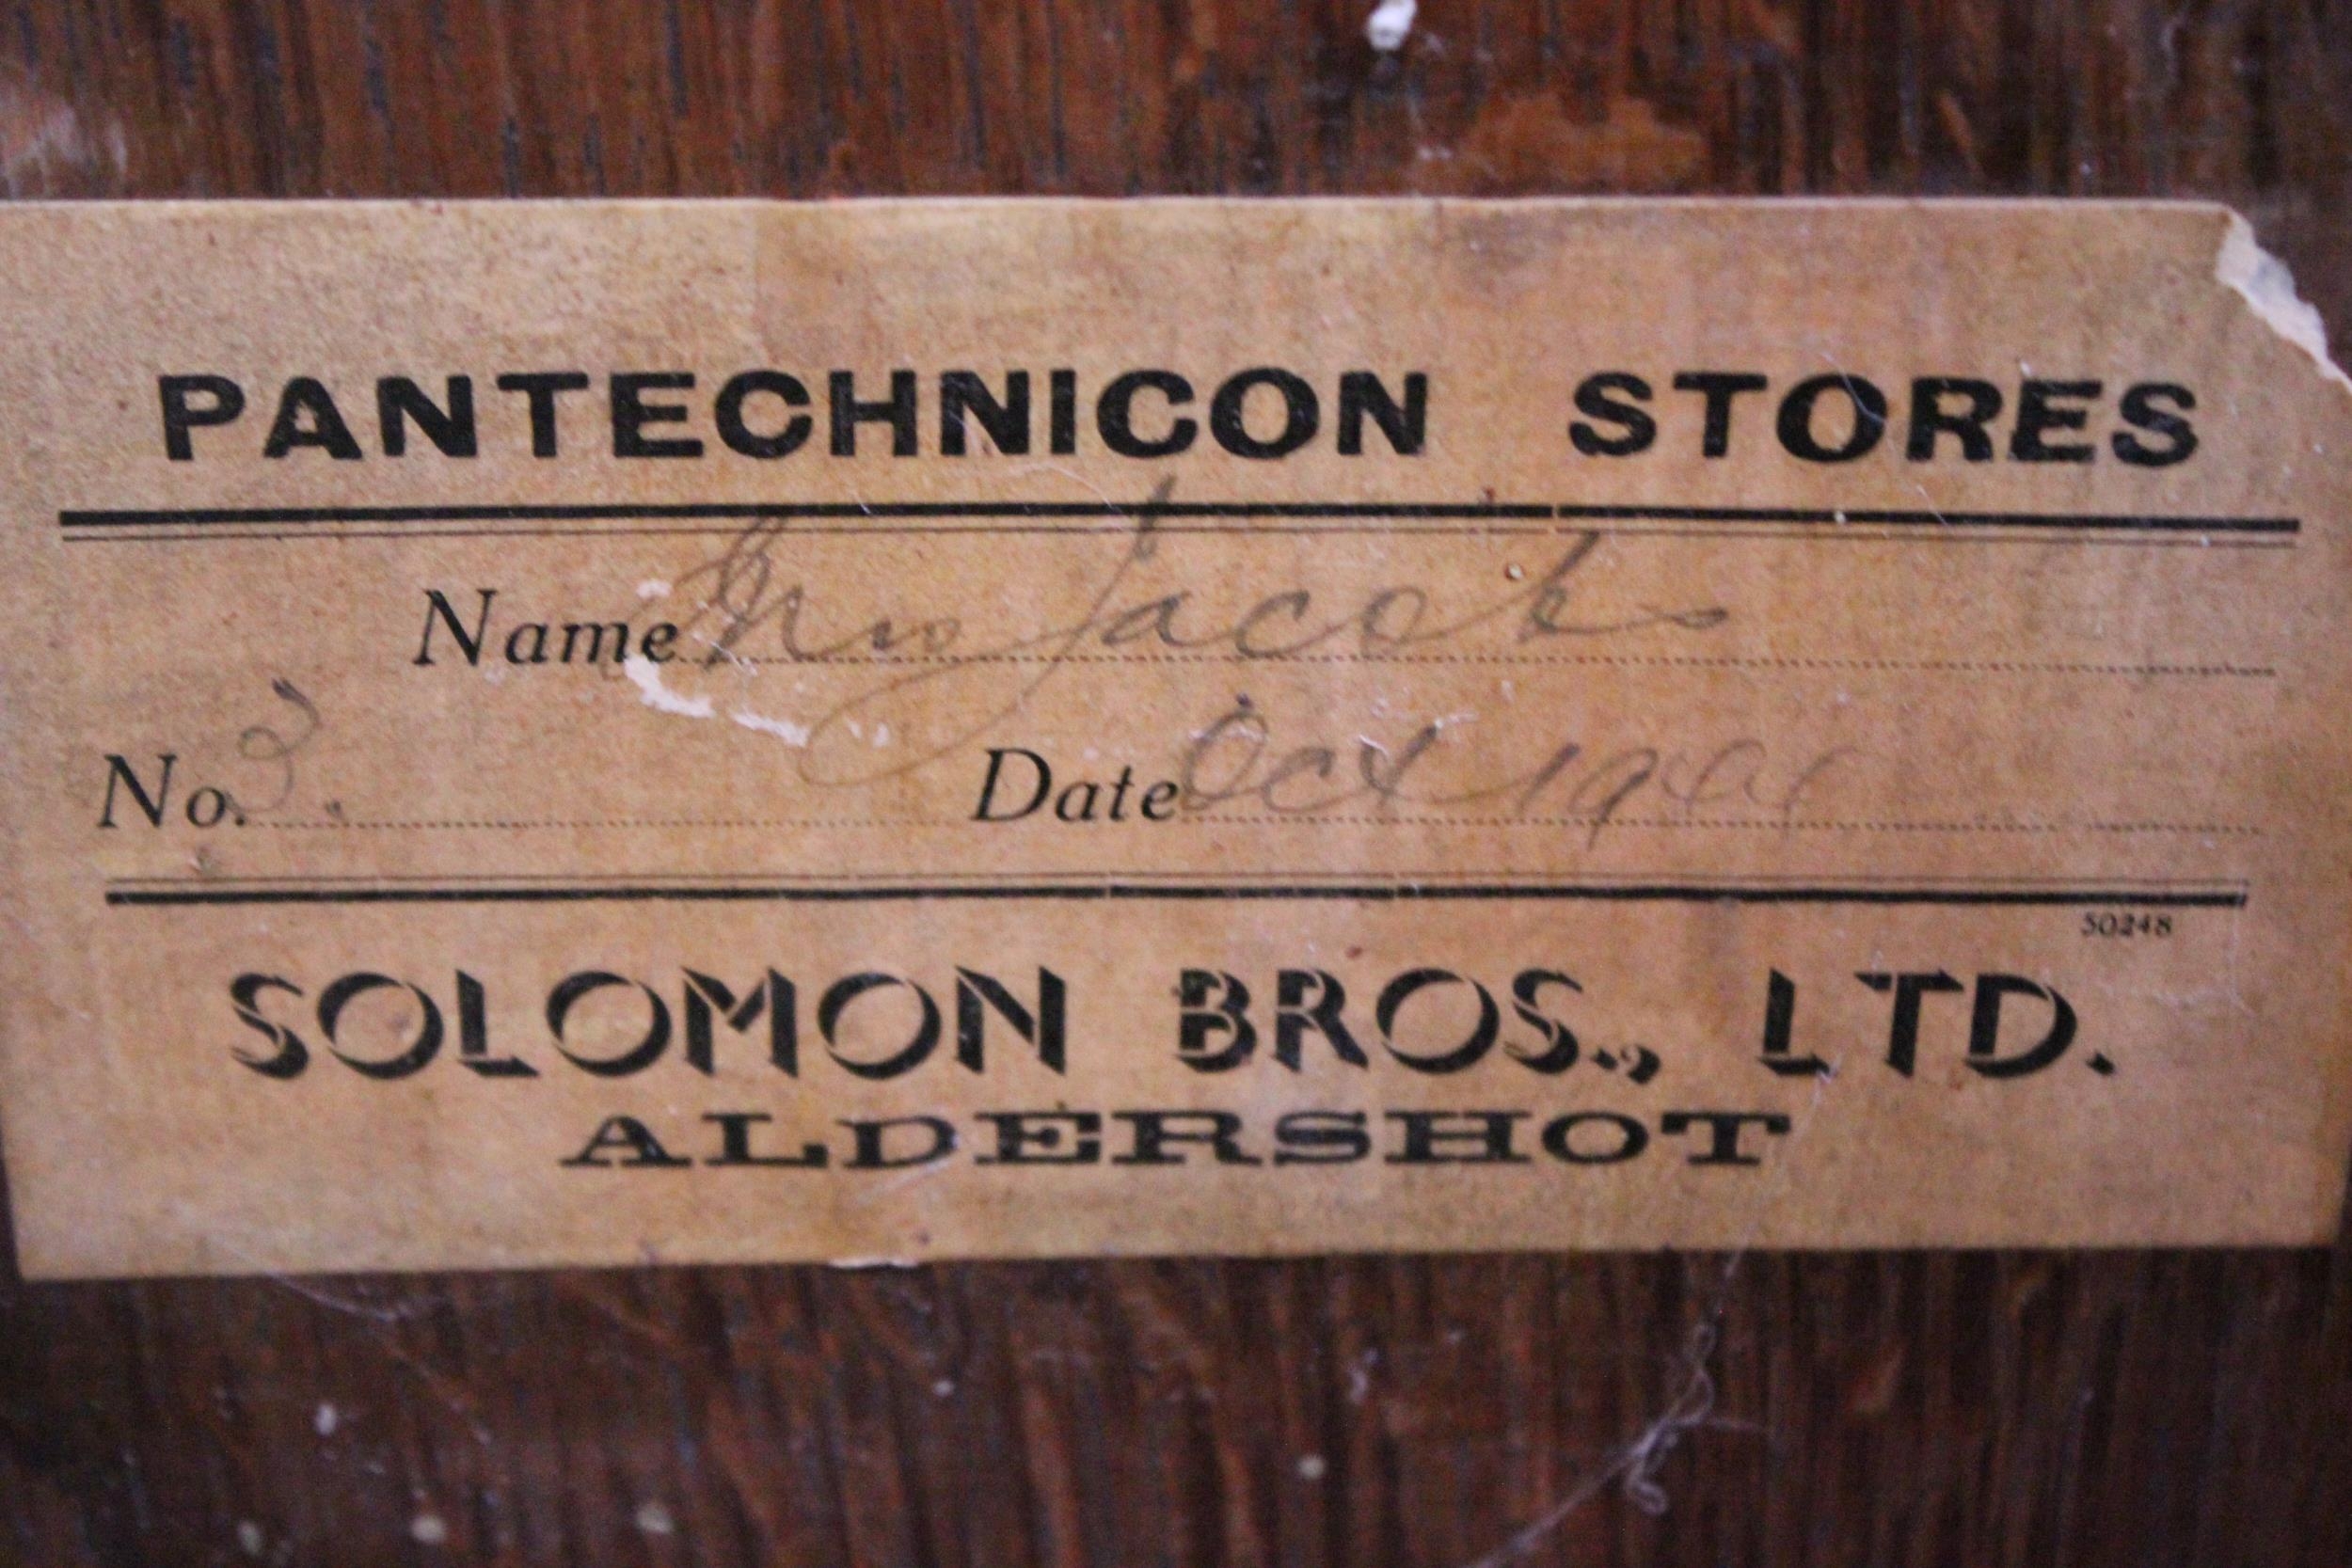 PANTECHNICON STORES
Name Mrs Jacobs
No. 3. Date Oct 1941
50248
SOLOMON BROS., LTD.
ALDERSHOT